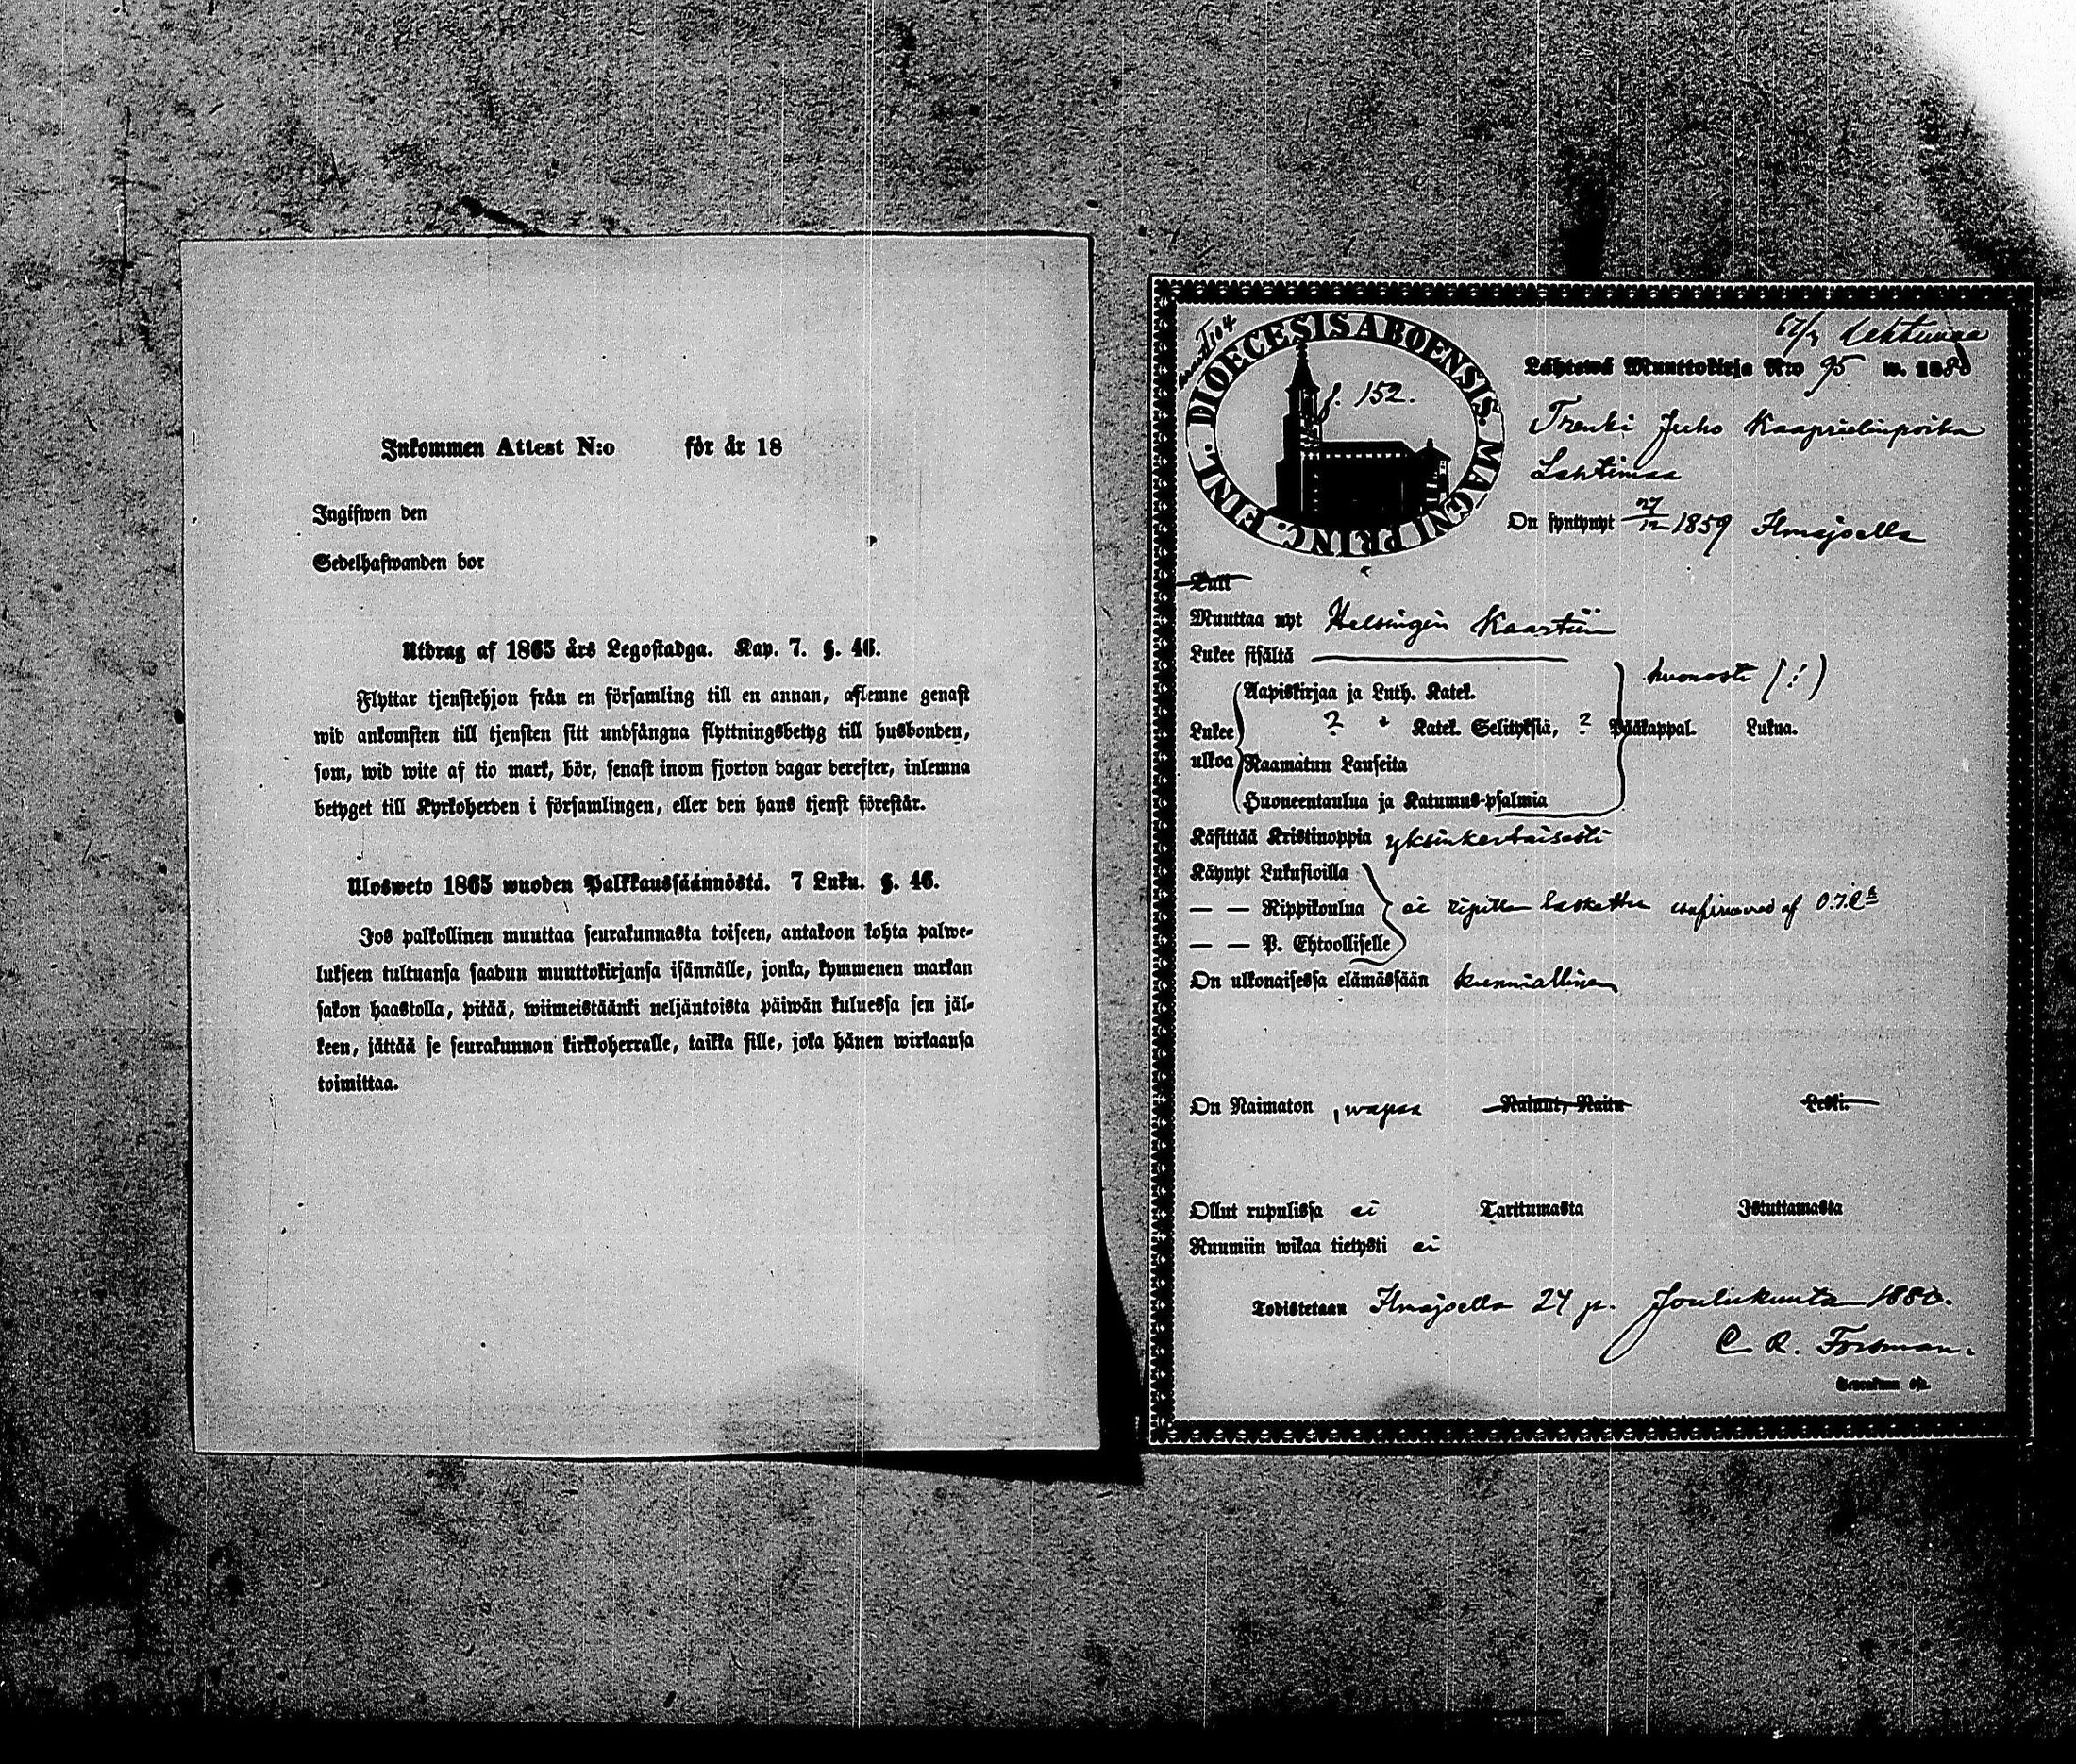 Inkommen Attest N:o för år 18
Ingifwen den
Sedelhafwanden bor
Utdrag af 1865 års Legostadga. Kap. 7. §. 46.
Flyttar tjenstehjon från en församling till en annan, aflemne genast
wid ankomsten till tjensten sitt undfångna flyttningsbetyg till husbonden,
som, wid wite af tio mark, bör, senast inom fjorton dagar derefter, inlemna
betyget till Kyrkoherden i församlingen, eller den hans tjenst förestår.
Ulosweto 1865 wuoden Palkkaussäännöstä. 7 Luku. §. 46.
Jos palkollinen muuttaa seurakunnasta toiseen, antakoon kohta palwe-
lukseen tultuansa saadun muuttokirjansa isännälle, jonka, kymmenen markan
sakon haastolla, pitää, wiimeistäänki neljäntoista päiwän kuluessa sen jäl-
keen, jättää se seurakunnan kirkkoherralle, taikka sille, joka hänen wirkaansa
toimittaa.
DIOECESIS ABOENSIS. MAGNI PRINC. FINL.
f. 152.
67/ Lehtimaa
Lähtewä Muuttokirja N:o 95 w. 1880
Trenki Juho Kaaprielinpoika
Lehtimaa
On syntynyt 27/12 1859 Ilmajoella
Muuttaa nyt Helsingin Kaartiin
Lukee sisältä
Aapiskirjaa ja Luth. Katek. huonosti (!)
Lukee ulkoa ? " Katek. Selityksiä, ? Pääkappal. Lukua.
Raamatun Lauseita
Huoneentaulua ja Katumus-psalmia
Käsittää Kristinoppia yksinkertaisesti
Käynyt Lukusioilla
— — Rippikoulua ei ripille laskettu confirmerad af
— — P. Ehtoollisella
On ulkonaisessa elämässään kunniallinen
On Naimaton , wapaa Nainut, Naitu Leski.
Ollut rupulissa ei Tarttumasta Istuttamasta
Ruumiin wikaa tietysti ei
Todistetaan Ilmajoella 24 p. Joulukuuta 1880.
C. R. Forsman.